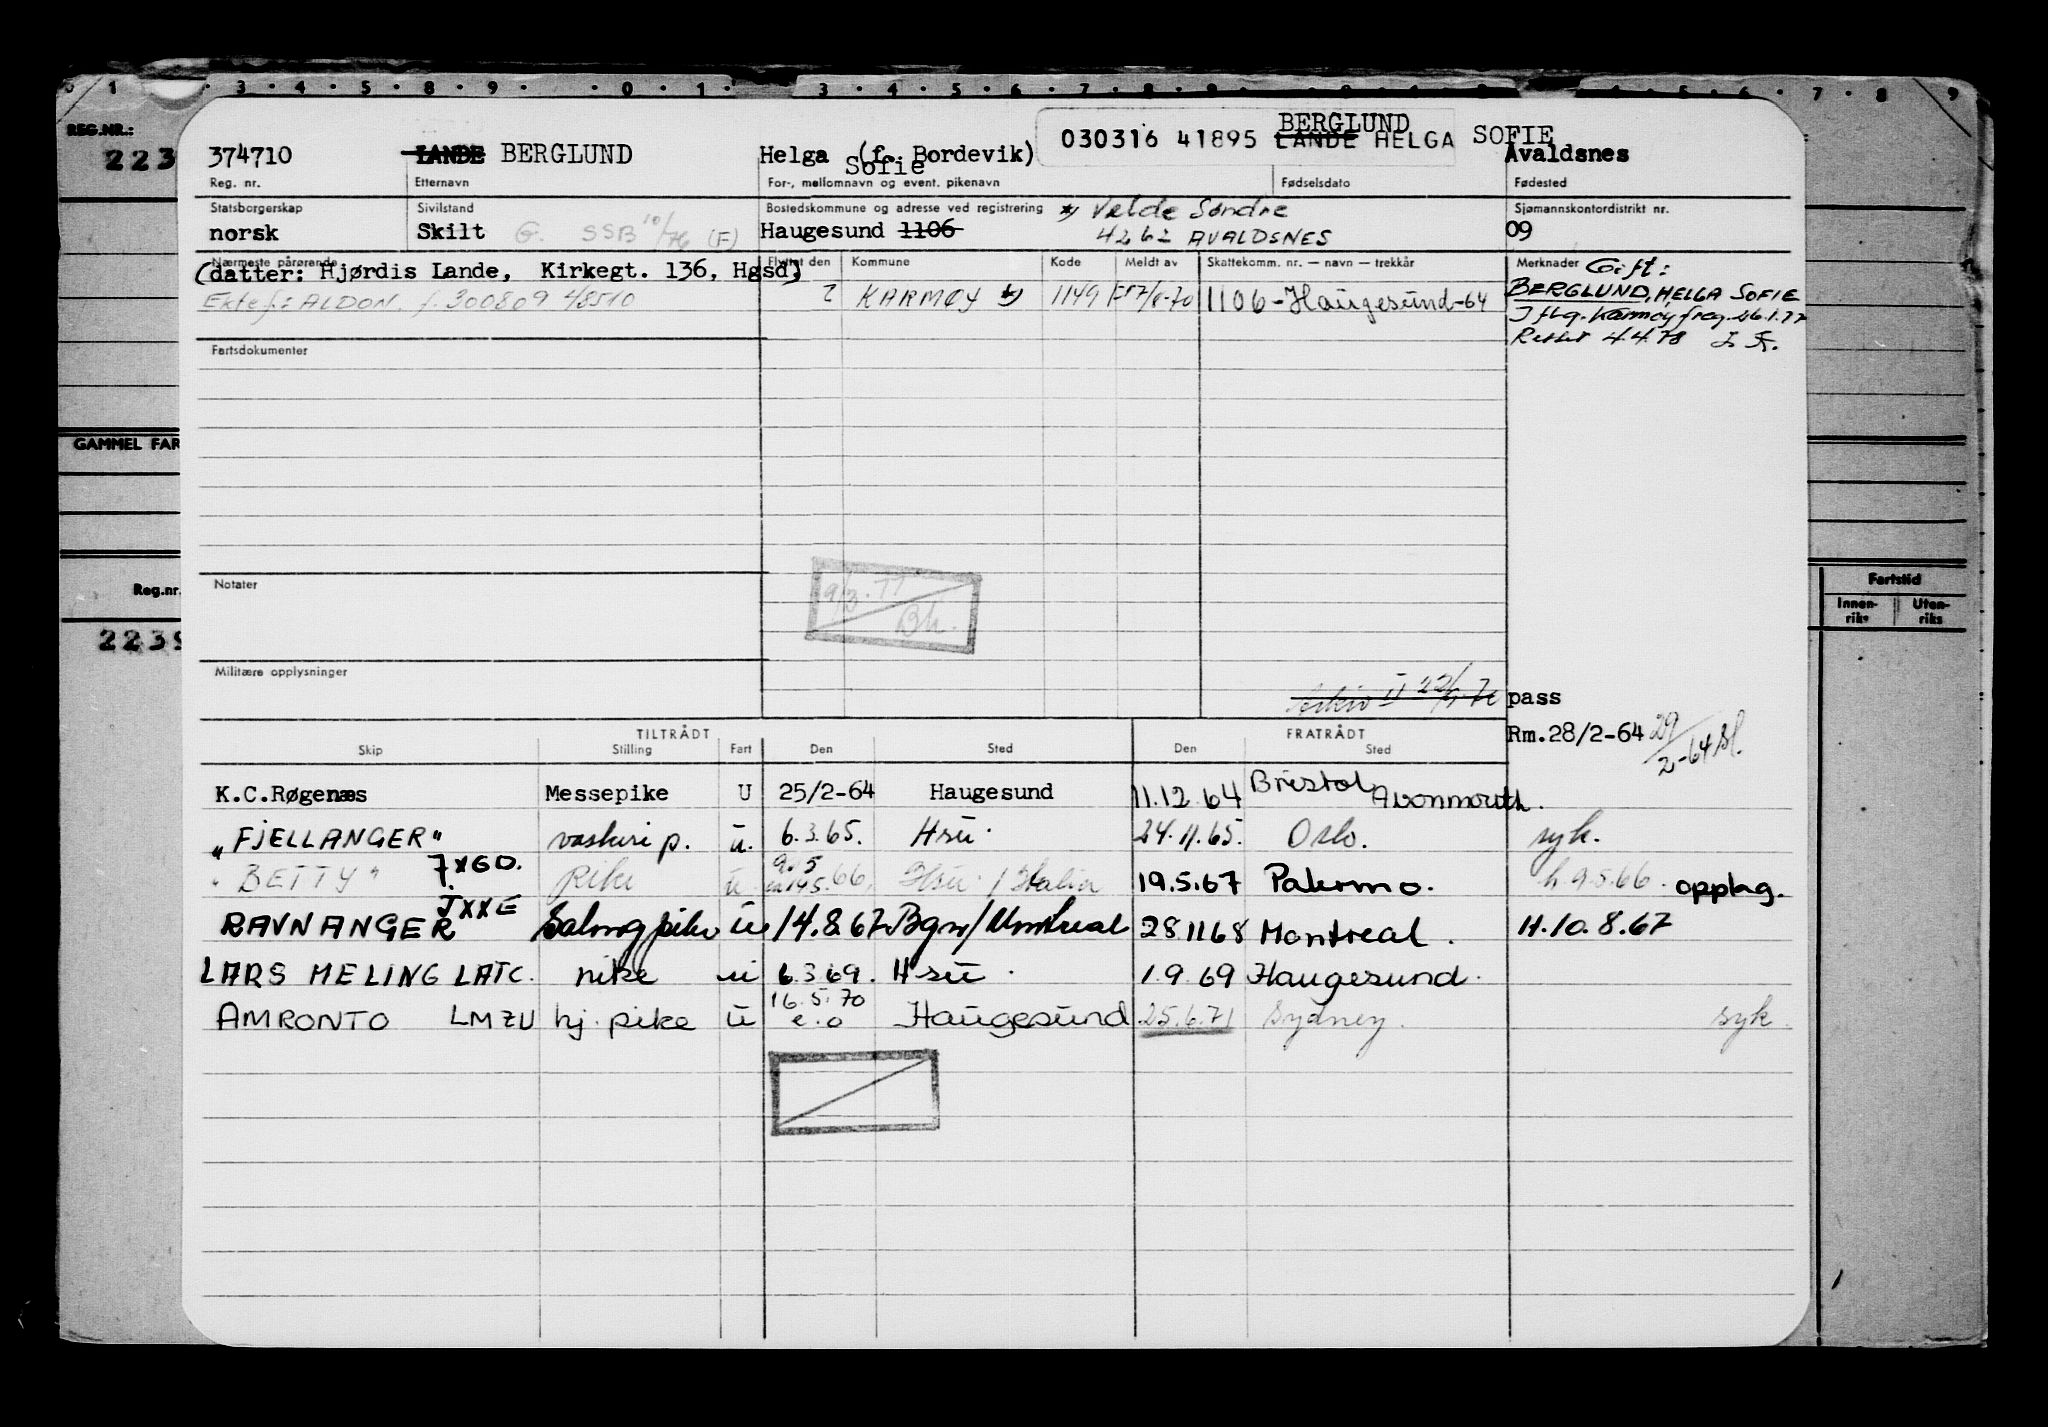 1 · 3 · 4 · 5 · 8 · 9 · 0 · 1 · 3 · 4 · 5 · 6 · 7 · 8 · 7 · 8 · 9
REG.NR.:
223
BERGLUND
030316 41895 LANDE HELGA SOFIE
374710 LANDE BERGLUND Helga (f. Bordevik) Avaldsnes
Sofie
Reg. nr. Etternavn For-, mellomnavn og event. pikenavn Fødselsdato Fødested
Statsborgerskap Sivilstand Bostedskommune og adresse ved registrering Velde Søndre Sjømannskontordistrikt nr.
norsk Skilt G. SSB 10/76 (F) Haugesund 1106 4262 AVALDSNES 09
Nærmeste pårørende Flyttet den Kommune Kode Meldt av Skattekomm. nr. — navn — trekkår Merknader Gift:
(datter: Hjørdis Lande, Kirkegt. 136, Hgsd)
Ektef.: ALDON. f. 300809 48510 KARMØY 1149 1106-Haugesund-64 BERGLUND, HELGA SOFIE
J flg. Karmøy freg. 26.1.77
Rettet 4.4.78
Fartsdokumenter
GAMMEL FAR
Notater 9/3.77
Bh.
Reg.nr. Fartstid
Innen-riks Uten-riks
2239
Militære opplysninger
Arkiv II pass
Rm.28/2-64 29/2-64
TILTRÅDT FRATRÅDT
Skip Stilling Fart Den Sted Den Sted
K.C.Røgenæs Messepike U 25/2-64 Haugesund 11.12 64 Bristol Avonmouth.
"FJELLANGER" vaskeri p. u. 6.3.65. Hsu. 24.11.65. Oslo. syk.
"BETTY" JXGD. Pike u 66. Hsu / Italia 19.5.67 Palermo. h.9.5.66. opplag.
RAVNANGER JXXE Salongpike u 14.8.67 Bgn/Montreal 28.11 68 Montreal. H.10.8.67
LARS MELING LATC. pike u 6.3.69. Hsu. 1.9.69 Haugesund.
AMRONTO LMZU hj. pike u 16.5.70 e.o Haugesund 25.6.71 Sydney. syk